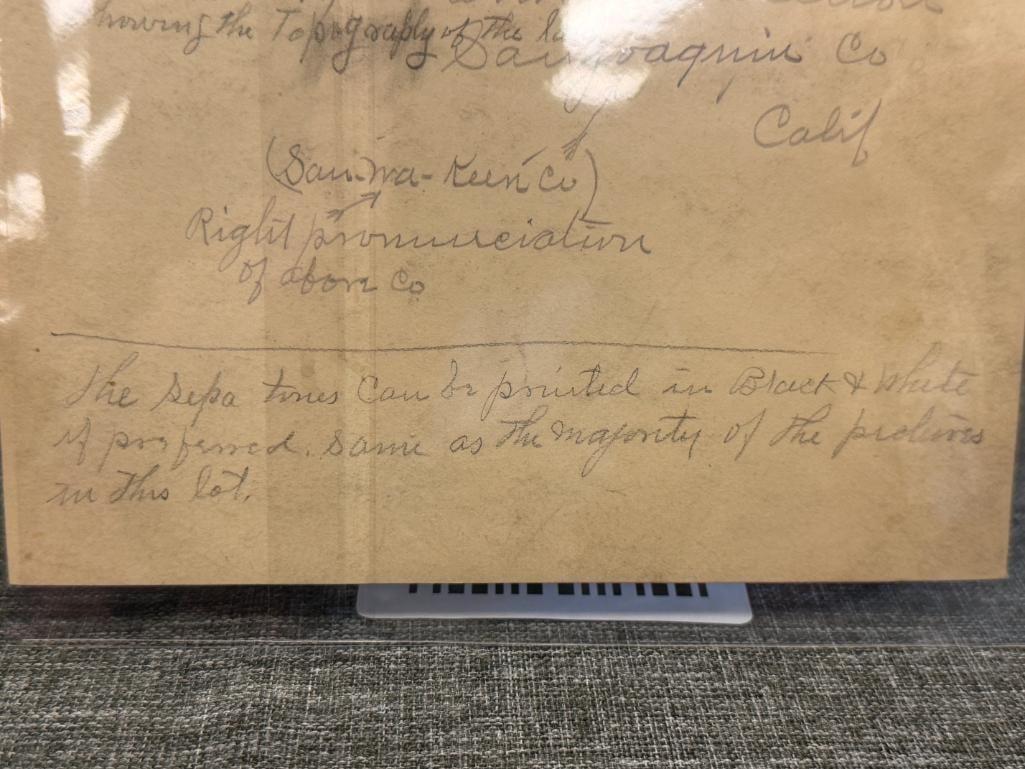 howing the Topography of the
San Joaquin Co
Calif
(San-wa-Keen Co)
Right pronunciation
of above Co
The Sepa tones can be printed in Black & White
if preferred. Same as the majority of the pictures
in this lot.